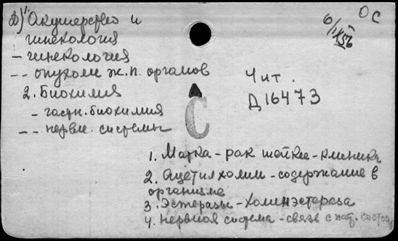 1) Акушерство и
гинекология
- гинекология
-- опухоли ж. п. органов
2. Биохимия
- гастн. биохимия
-- нервн. системы
ОС
6/IX 56
Чит.
Д16473
С
1. Матка - рак шейки - клиника
2. Ацетилхолин - содержание в
организме
3. Эстеразы - Холинэстераза
4. Нервная система - связь с